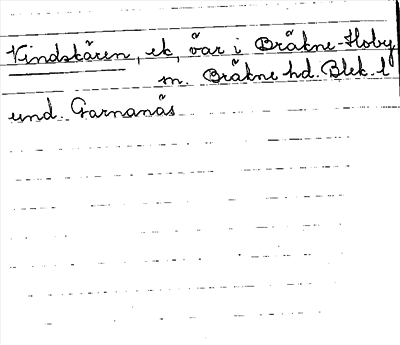 Vindskären, ek, öar i Bräkne-Hoby
sn. Bräkne hd. Blek. l
und. Garnanäs